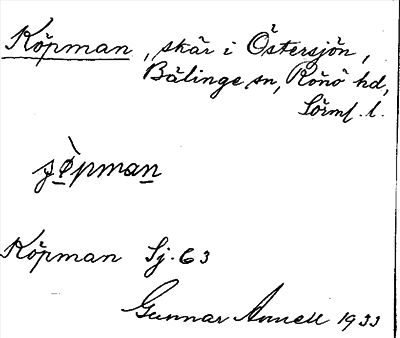 Köpman, skär i Östersjön,
Bälinge sn, Rönö hd,
Sörml. l.
Köpman Sj. 63
Gunnar Annell 1933